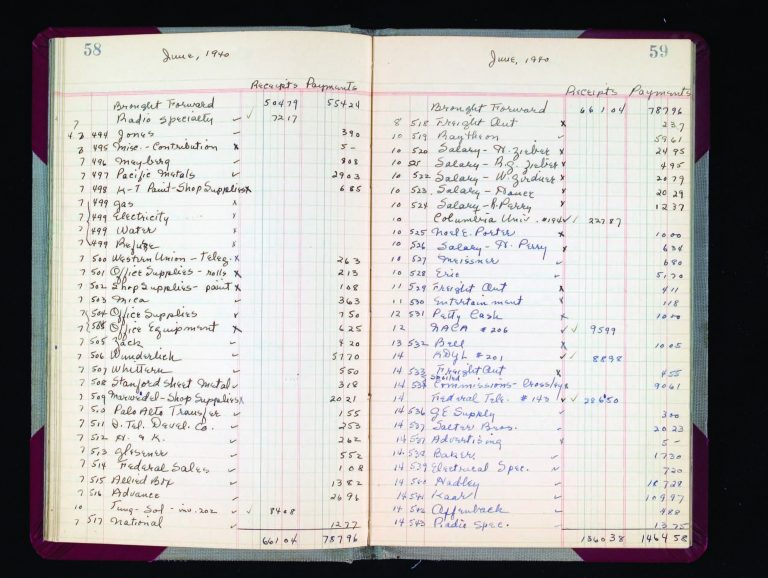 58
June, 1940
Receipts Payments
Brought Forward 504 79 554 24
7 Radio Specialty ✓ 72 17
494 Jones 3 90
8 495 Misc. - Contribution x 5 -
7 496 Mayberg 8 08
7 497 Pacific Metals 29 03
7 498 K-T Paint - Shop Supplies x 6 85
7 499 Gas x
7 499 Electricity x
7 499 Water x
7 499 Refuge x
7 500 Western Union - Teleg. x 2 63
7 501 Office Supplies - rolls x 2 13
7 502 Shop Supplies - paint x 1 08
7 503 Mica 3 63
7 504 Office Supplies x 7 50
7 Office Equipment x 6 25
7 505 Zack 4 20
7 506 Wunderlich 57 70
7 507 Whittern 5 50
7 508 Stanford Sheet Metal 3 18
7 509 - Shop Supplies x 20 21
7 510 Palo Alto Transfer 1 55
7 511 Tel. Devel. Co. 2 53
7 512 H. & K. 2 62
7 513 5 52
7 514 Federal Sales 1 08
7 515 Allied Box 13 82
7 516 Advance 26 96
10 Tung-Sol - inv. 202 ✓ 84 08
7 517 National 12 77
661 04 787 96
59
June, 1940
Receipts Payments
Brought Forward 661 04 787 96
8 518 Freight Out x 2 37
10 519 Raytheon 59 61
10 520 Salary - H. Zieber x 24 95
10 521 Salary - B.G. Zieber x 4 95
10 522 Salary - W. x 20 79
10 523 Salary - x 20 29
10 524 Salary - R. Perry x 12 37
10 Columbia Univ. #194 ✓ 227 87
10 525 Noel E. Porter x 10 00
10 526 Salary - H. Perry x 6 34
10 527 Meissner 6 80
10 528 Eric 51 70
11 529 Freight Out x 4 11
11 530 Entertainment x 1 18
12 531 Petty Cash x 10 00
12 NACA #206 ✓ 95 99
13 532 Bell x 10 05
14 KDYL #201 ✓ 88 98
14 533 Freight Out x 4 55
spoiled
14 534 Commissions - x 90 61
14 Federal Tele. #143 ✓ 286 50
14 536 G.E. Supply 3 00
14 537 Salter Bros. 20 23
14 Advertising x 5 -
14 538 Baker 17 30
14 539 Electrical Spec. 7 20
14 540 Hadley 187 29
14 541 Kaar 109 97
14 542 Offenbach 4 88
14 543 Radio Spec. 13 75
1360 38 1464 58